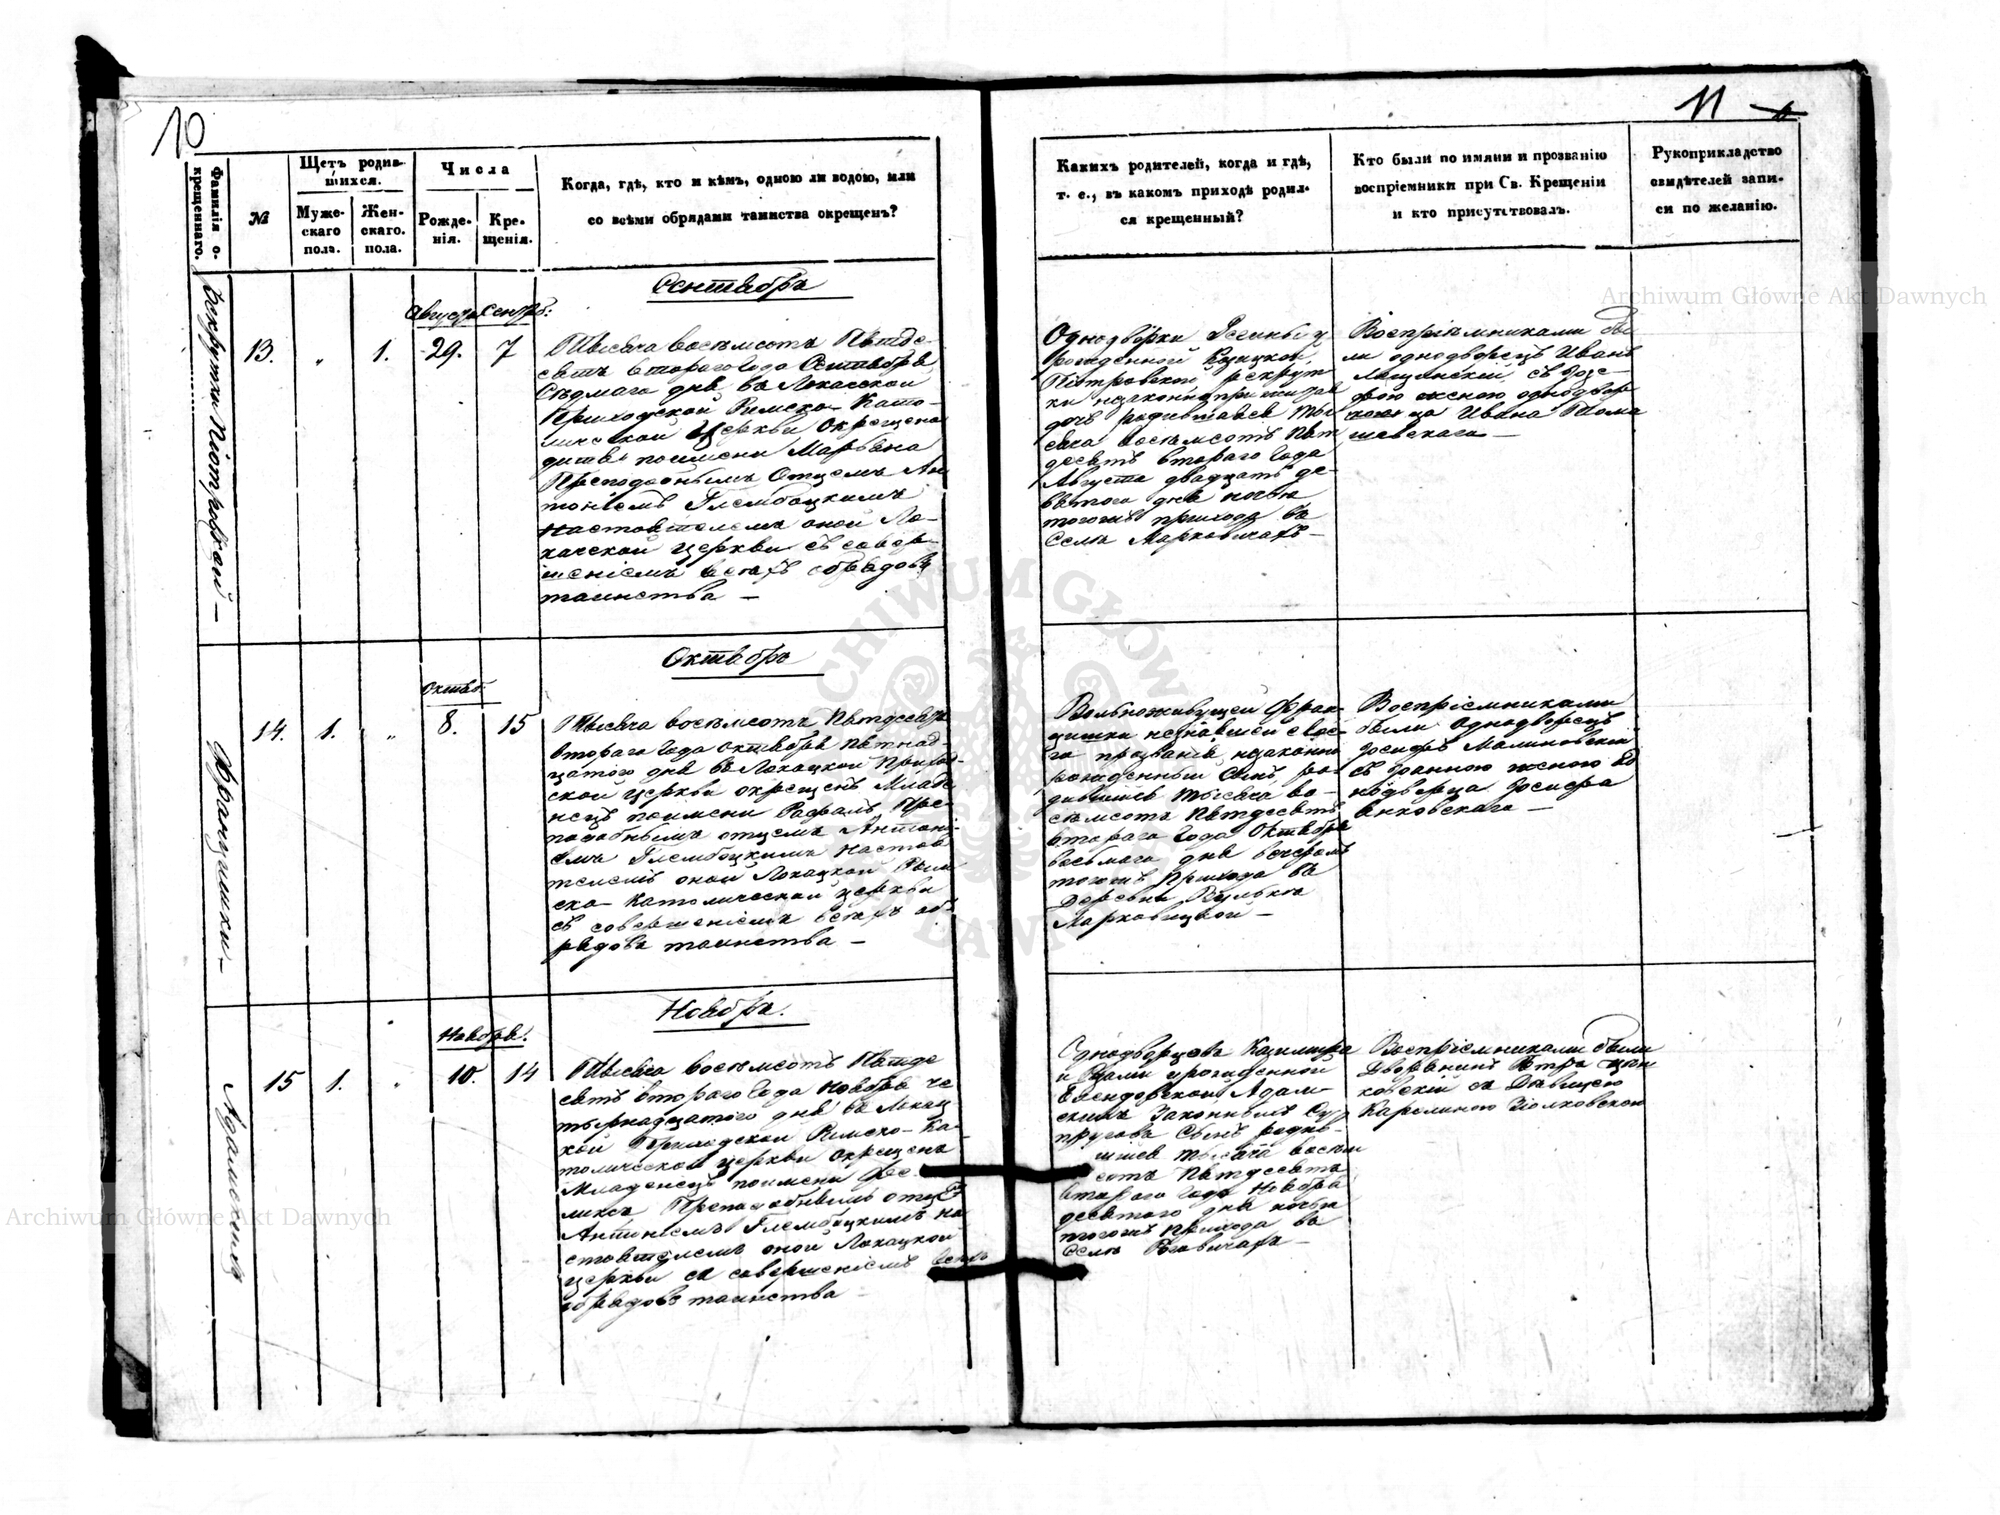 10
Фамилія о-
крещеннаго.
№
Щетъ родив-
шихся.
Муже-
скаго
пола.
Жен-
скаго.
пола.
Числа
Рожде-
нія.
Кре-
щенія.
Когда, гдѣ, кто и кѣмъ, одною ли водою, или
со всѣми обрядами таинства окрещенъ?
Сентябрь
Августа Сентяб:
13. " 1. 29. 7
Тысяча восемьсотъ Пятде-
сятъ втораго Года Сентября
Седмаго дня въ Локачской
Приходской Римско-Като-
лической Церкви окрещено
дитя поимени Марьяна
Преподобнымъ Отцемъ Ан
тоніемъ Глембоцкимъ
Настоятелемъ оной Ло-
качской Церкви съ совер-
шеніемъ всѣхъ обрядовъ
таинства —
Октябрь
Октяб:
Францишки —
14. 1. " 8. 15
Тысяча восемьсотъ Пятдесятъ
втораго Года Октября Пятнад-
цатого дня въ Локацкой Приход-
ской Церкви окрещенъ Младе
нецъ поимени Рафалъ Пре-
подобнымъ отцемъ Антоні-
емъ Глембоцкимъ Настоя
телемъ оной Локацкой Рим
ско-Католической церкви
съ совершеніемъ всѣхъ об-
рядовъ таинства —
Ноябрь.
Ноября:
15 1. " 10. 14
Тысяча восемьсотъ Пятде
сятъ втораго Года Ноября че
тырнадцатого дня въ Локац
кой Приходской Римско-Ка-
толической церкви окрещенъ
Младенецъ поимени Фе-
ликсъ Преподобнымъ отцемъ
Антоніемъ Глембоцкимъ на
стоятелемъ оной Локацкой
церкви съ совершеніемъ всѣхъ
обрядовъ таинства —
11
Какихъ родителей, когда и гдѣ,
т. е., въ какомъ приходѣ родил-
ся крещенный?
Кто были по имяни и прозванію
воспріемники при Св. Крещеніи
и кто присутствовалъ.
Рукоприкладство
свидѣтелей запи-
си по желанію.
Однодворки
рожденной
Піотровской рекрут
ки незаконноприжитая
дочь родившаяся ты
сяча восемьсотъ Пят
десятъ втораго Года
Августа двадцать де-
вятого дня ночью
тогожъ прихода въ
Селѣ Марковичахъ —
Воспріемниками бы
ли однодворецъ Иванъ
съ
женою однодвор
ца Ивана Тома
шевскаго —
Вольноживущей Фран
цишки незнавшей свое-
го прозванія незаконно
рожденный Сынъ ро-
дившійся тысяча во-
семьсотъ Пятдесятъ
втораго Года Октября
восьмаго дня вечеромъ
тогожъ Прихода въ
Деревни Вулька
Марковицкой —
Воспріемниками
были Однодворецъ
Іосифъ Малиновскій
съ Іоанною женою од
нодворца Іосифа
Янковскаго —
Однодворцевъ Казимира
и урожденной
Адам-
скихъ Законныхъ Су-
пруговъ Сынъ роди-
шійся тысяча восемь
сотъ Пятдесятъ
втораго Года Ноября
десятого дня ночью
тогожъ Прихода въ
Селѣ Роговичахъ —
Воспріемниками были
Дворянинъ Петръ
ковскій съ Дѣвицею
Каролиною Зіолковскою
Archiwum Główne Akt Dawnych
Archiwum Główne Akt Dawnych